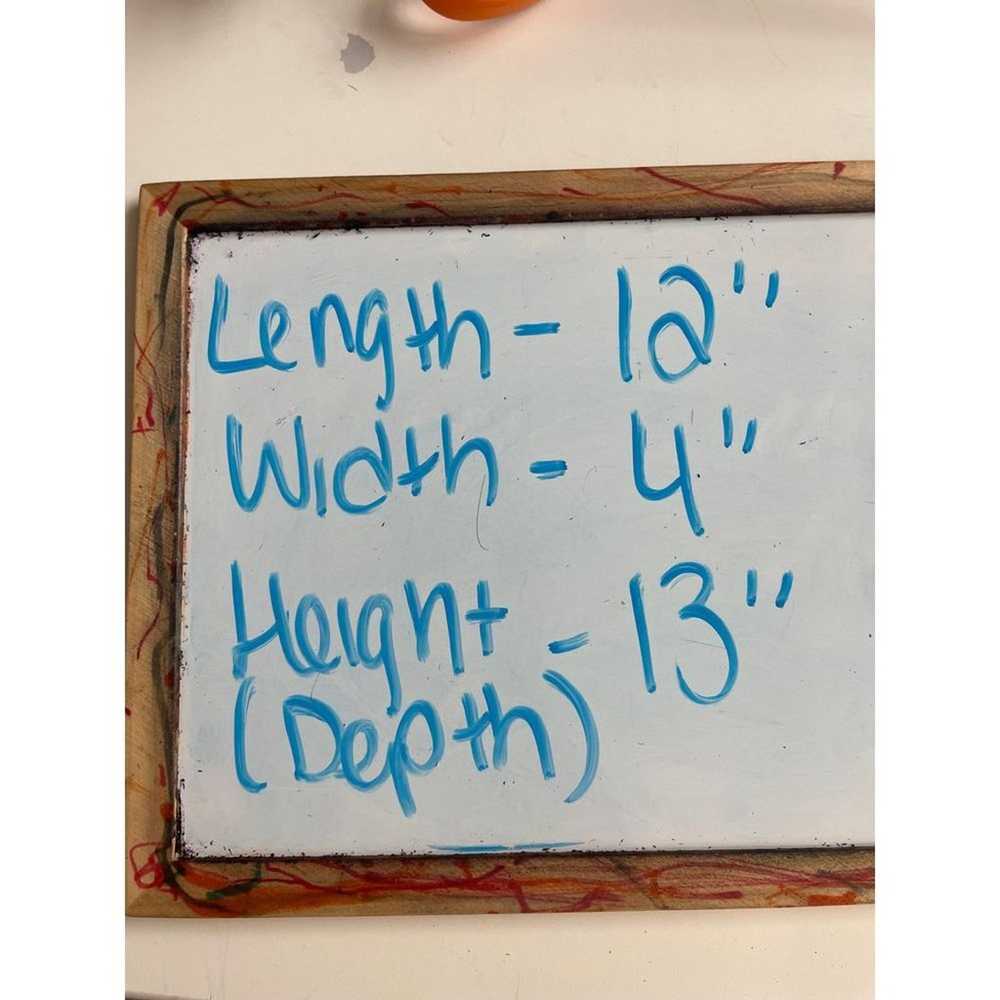 Length - 12"
Width - 4"
Height - 13"
(Depth)